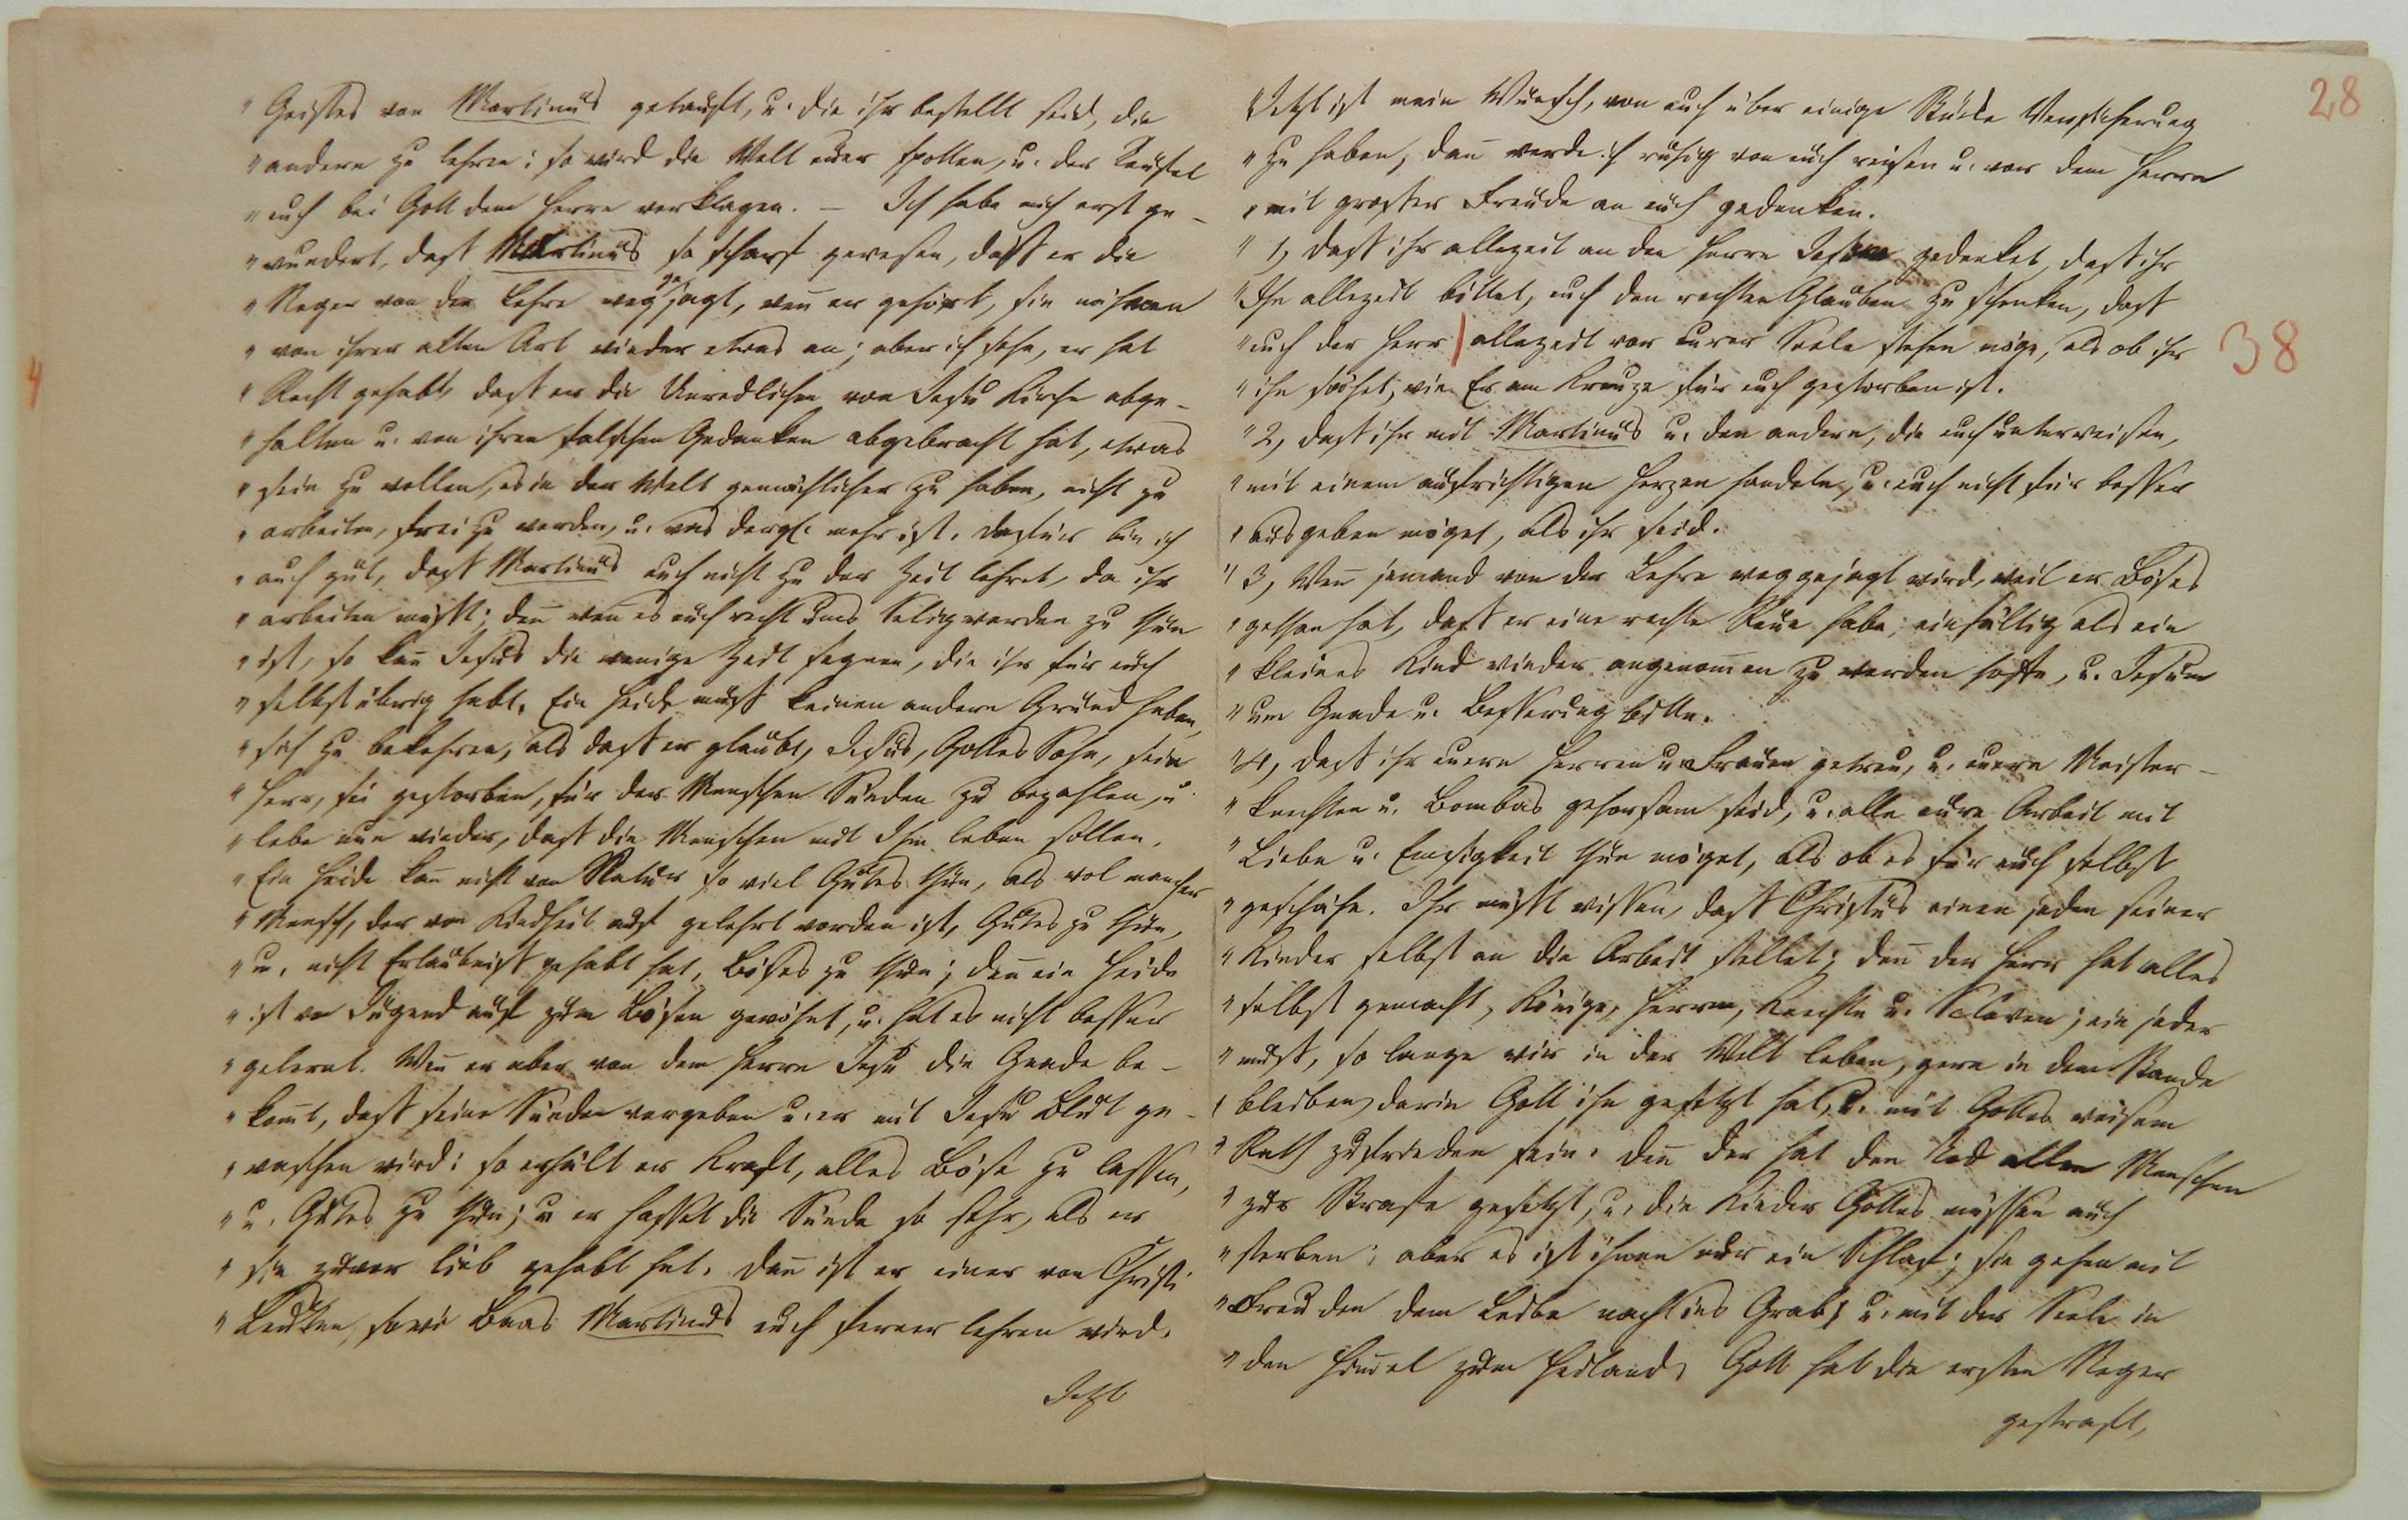 " Geistes von Martinus getauft, u. die ihr bestellt seid, die
" andern zu lehren: so wird die Welt eurer spotten, u. der Teufel
" euch bei Gott dem Herrn verklagen. – Ich habe mich erst ge-
" wundert, daß Martinus so scharf gewesen, daß er die
" Neger von der Lehre weggejagt, weñ er gehört, sie nähmen
" von ihrer alten Art wieder etwas an; aber ich sehe, er hat
" Recht gehabt, daß er die Unredlichen von Jesu Kirche abge-
" halten u. von ihren falschen Gedanken abgebracht hat, etwas
" sein zu wollen, es in der Welt gemächlicher zu haben, nicht zu
" arbeiten, frei zu werden, u. was dergl. mehr ist. Dafür bin ich
" auch gut, daß Martinus euch nicht zu der Zeit lehret, da ihr
" arbeiten müßt; deñ weñ es euch recht ums Seligwerden zu thun
" ist, so kañ Jesus die wenige Zeit segnen, die ihr für euch
" selbst übrig habt. Ein Heide muß keinen andern Grund haben,
" sich zu bekehren, als daß er glaubt, Jesus, Gottes Sohn, sein
" Herr, sei gestorben, für der Menschen Sünden zu bezahlen, u.
" lebe nun wieder, daß die Menschen mit Ihm leben sollen.
" Ein Heide kañ nicht von Natur so viel Gutes thun, als wol mancher
" Mensch, der von Kindheit auf gelehrt worden ist, Gutes zu thun,
" u. nicht Erlaubniß gehabt hat, Böses zu thun; deñ ein Heide
" ist von Jugend auf zum Bösen gewöhnt, u. hat es nicht besser
" gelernt. Weñ er aber von dem Herrn Jesu die Gnade be-
" komt, daß seine Sünden vergeben u. er mit Jesu Blut ge-
" waschen wird: so erhält er Kraft, alles Böse zu lassen,
" u. Gutes zu thun; u. er hasset die Sünde so sehr, als er
" sie zuvor lieb gehabt hat. Dañ ist er einer von Christi
" Leuten, sowie Baas Martinus euch ferner lehren wird.
Jetzt
28
" Jetzt ist mein Wunsch, von euch über einige Stücke Versicherung
" zu haben, dañ werde ich ruhig von euch reisen u. vor dem Herrn
" mit großer Freude an euch gedenken.
" 1, daß ihr allezeit an den Herrn Jesum gedenket, daß ihr
" Ihn allezeit bittet, euch den rechten Glauben zu schenken, daß
" euch der Herr | allezeit vor eurer Seele stehen möge, als ob ihr
38
" ihn sähet, wie Er am Kreuze für euch gestorben ist.
" 2, daß ihr mit Martinus u. den andern, die euch unterweisen,
" mit einem aufrichtigen Herzen handeln, u. euch nicht für besser
" ausgeben möget, als ihr seid.
" 3, Weñ jemand von der Lehre weggejagt wird, weil er Böses
" gethan hat, daß er eine rechte Reue habe; einfältig als ein
" kleines Kind wieder angenom̄en zu werden hoffe, u. Jesum
" um Gnade u. Besserung bitte.
" 4, daß ihr euern Herren u. Frauen getreu, u. euern Meister-
" knechten u. Bombas gehorsam seid, u. alle eure Arbeit mit
" Liebe u. Emsigkeit thun möget, als ob es für euch selbst
" geschähe. Ihr müßt wissen, daß Christus einen jeden seiner
" Kinder selbst an die Arbeit stellet; deñ der Herr hat alles
" selbst gemacht, Könige, Herren, Knechte u. Sclaven; ein jeder
" muß, so lange wir in der Welt leben, gern in dem Stande
" bleiben, darin Gott ihn gesetzt hat, u. mit Gottes weisem
" Rath zufrieden sein. Deñ der hat den Tod allen Menschen
" zur Strafe gesetzt, u. die Kinder Gottes müssen auch
" sterben; aber es ist ihnen nur ein Schlaf; sie gehen mit
" Freuden dem Leibe nach ins Grab, u. mit der Seele in
" den Him̄el zum Heiland. Gott hat die ersten Neger
gestraft,